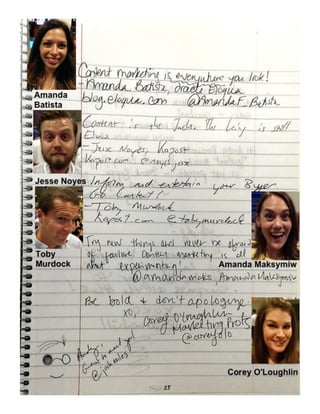 Content marketing is everywhere you look!
Amanda Batista, Oracle Eloqua
blog.eloqua.com @AmandaF_Batista
Amanda
Batista
Content is the The King is still
Elvis
- Jesse Noyes, Kapost
Kapost.com @noyesjesse
Jesse Noyes
Inform and entertain your Buyer
Go Content!
- Toby Murdock
Kapost.com @tobymurdock
Toby
Murdock
Try new things and never be afraid
of failure. Content marketing is all
about experimenting!
@amandamaks, Amanda Maksymiw
Amanda Maksymiw
Be bold & don't apologize.
xo,
Corey O'Loughlin
Marketing Profs
@coreyolo
Corey O'Loughlin
Great to meet you!
PAGE 25